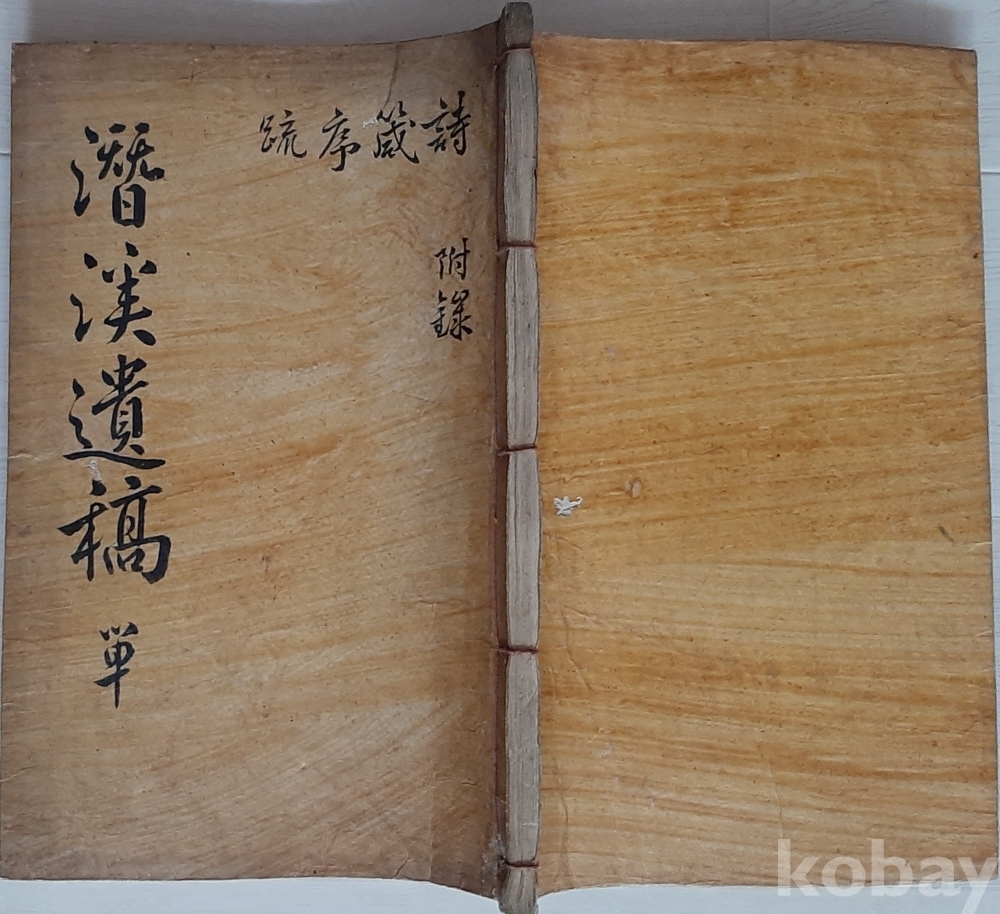 潛溪遺稿 単
詩箴序疏
附錄
kobay